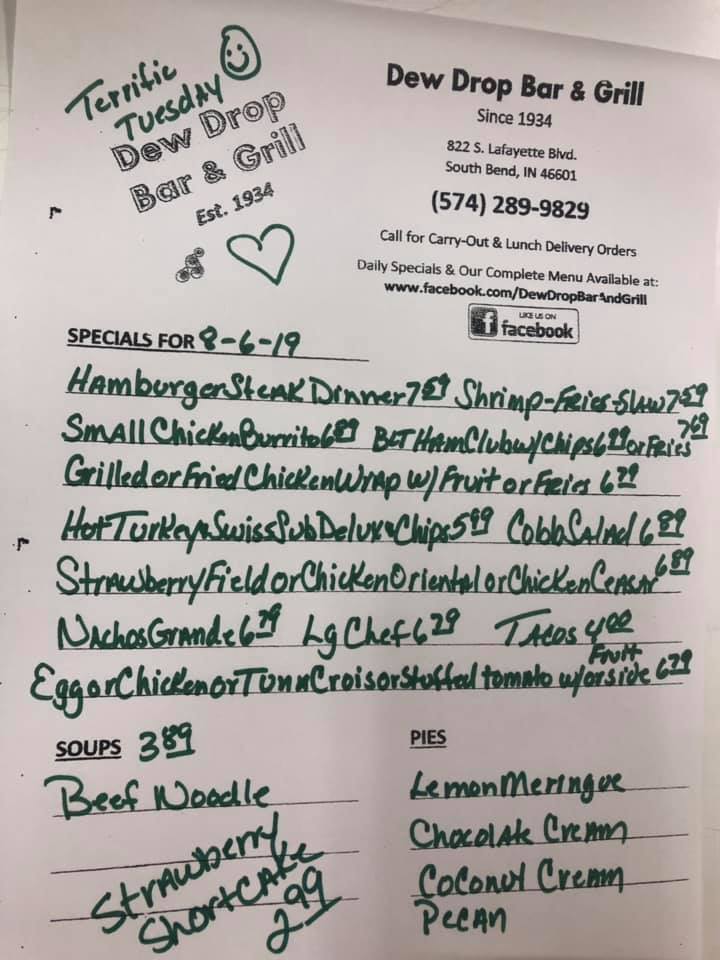 Terrific
Tuesday
Dew Drop
Bar & Grill
Est. 1934
Dew Drop Bar & Grill
Since 1934
822 S. Lafayette Blvd.
South Bend, IN 46601
(574) 289-9829
Call for Carry-Out & Lunch Delivery Orders
Daily Specials & Our Complete Menu Available at:
www.facebook.com/DewDropBarAndGrill
LIKE US ON
facebook
SPECIALS FOR 8-6-19
Hamburger Steak Dinner 7 59 Shrimp-Fries-Slaw 7 59
Small Chicken Burrito 6 89 BLT Ham Club w/ Chips 6 89 or Fries 7 69
Grilled or Fried Chicken Wrap w/ Fruit or Fries 6 79
Hot Turkey & Swiss Sub Deluxe Chips 5 99 Cobb Salad 6 89
Strawberry Field or Chicken Oriental or Chicken Ceasar 6 89
Nachos Grande 6 79 Lg Chef 6 29 Tacos 4 00
Egg or Chicken or Tuna Crois or Stuffed tomato w/ Fruit or side 6 79
SOUPS 3 89
Beef Noodle
Strawberry
Shortcake
2 99
PIES
Lemon Meringue
Chocolate Cream
Coconut Cream
Pecan